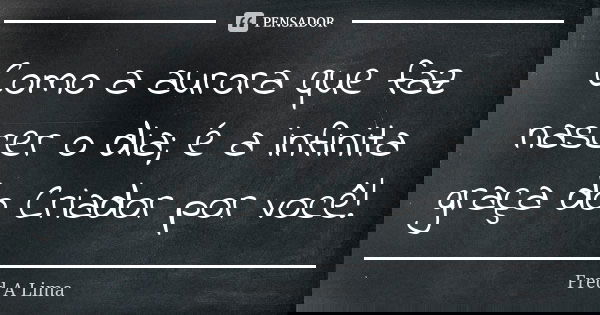 PENSADOR
Como a aurora que faz
nascer o dia; é a infinita
graça do Criador por você!
Fred A Lima